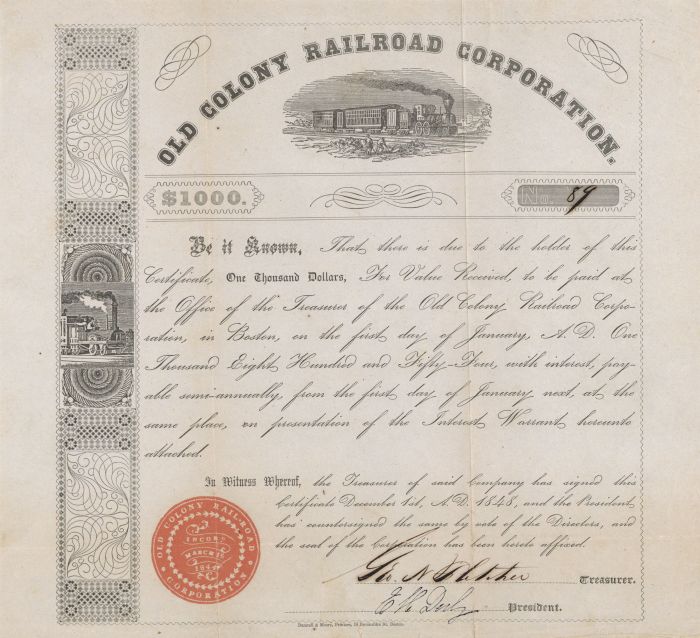 OLD COLONY RAILROAD CORPORATION.
$1000.
No. 89
Be it Known, That there is due to the holder of this
Certificate, One Thousand Dollars, For Value Received, to be paid at
the Office of the Treasurer of the Old Colony Railroad Corpo-
ration, in Boston, on the first day of January, A. D. One
Thousand Eight Hundred and Fifty-Four, with interest, pay-
able semi-annually, from the first day of January next, at the
same place, on presentation of the Interest Warrant hereunto
attached.
In Witness Whereof, the Treasurer of said Company has signed this
Certificate December 1st, A. D. 1848, and the President
has countersigned the same by vote of the Directors, and
the seal of the Corporation has been hereto affixed.
OLD COLONY RAIL-ROAD
INCORP.
MARCH
CORPORATION
Geo. N. Fletcher Treasurer.
E H Derby President.
Printers, Devonshire St. Boston.